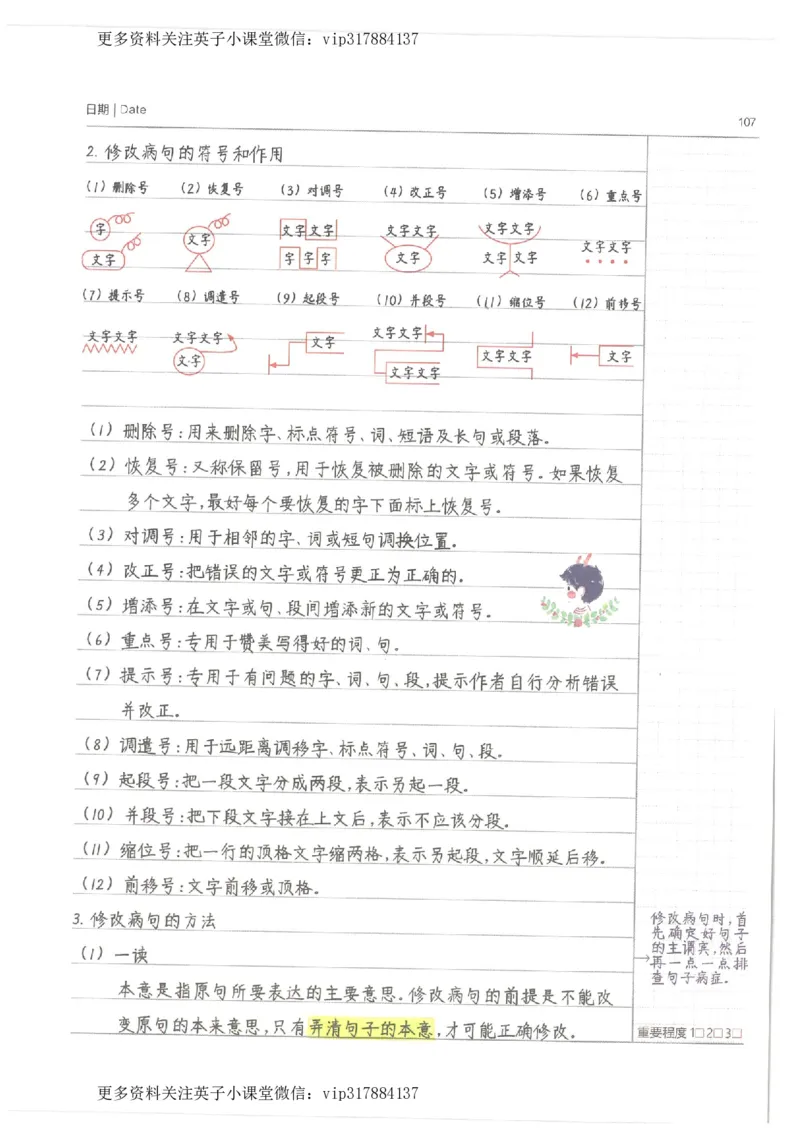 更多资料关注英子小课堂微信：vip317884137
日期 | Date
107
2. 修改病句的符号和作用
(1) 删除号 (2) 恢复号 (3) 对调号 (4) 改正号 (5) 增添号 (6) 重点号
字 文字 文字文字 文字文字 文字文字 文字文字
文字 字字字 文字 文字文字
(7) 提示号 (8) 调遣号 (9) 起段号 (10) 并段号 (11) 缩位号 (12) 前移号
文字文字 文字文字 文字 文字文字 文字文字 文字
文字 文字文字
(1) 删除号:用来删除字、标点符号、词、短语及长句或段落。
(2) 恢复号:又称保留号,用于恢复被删除的文字或符号。如果恢复
多个文字,最好每个要恢复的字下面标上恢复号。
(3) 对调号:用于相邻的字、词或短句调换位置。
(4) 改正号:把错误的文字或符号更正为正确的。
(5) 增添号:在文字或句、段间增添新的文字或符号。
(6) 重点号:专用于赞美写得好的词、句。
(7) 提示号:专用于有问题的字、词、句、段,提示作者自行分析错误
并改正。
(8) 调遣号:用于远距离调移字、标点符号、词、句、段。
(9) 起段号:把一段文字分成两段,表示另起一段。
(10) 并段号:把下段文字接在上文后,表示不应该分段。
(11) 缩位号:把一行的顶格文字缩两格,表示另起段,文字顺延后移。
(12) 前移号:文字前移或顶格。
3. 修改病句的方法
(1) 一读
本意是指原句所要表达的主要意思。修改病句的前提是不能改
变原句的本来意思,只有弄清句子的本意,才可能正确修改。
修改病句时,首
先确定好句子
的主谓宾,然后
再一点一点排
查句子病症。
重要程度 1□ 2□ 3□
更多资料关注英子小课堂微信：vip317884137